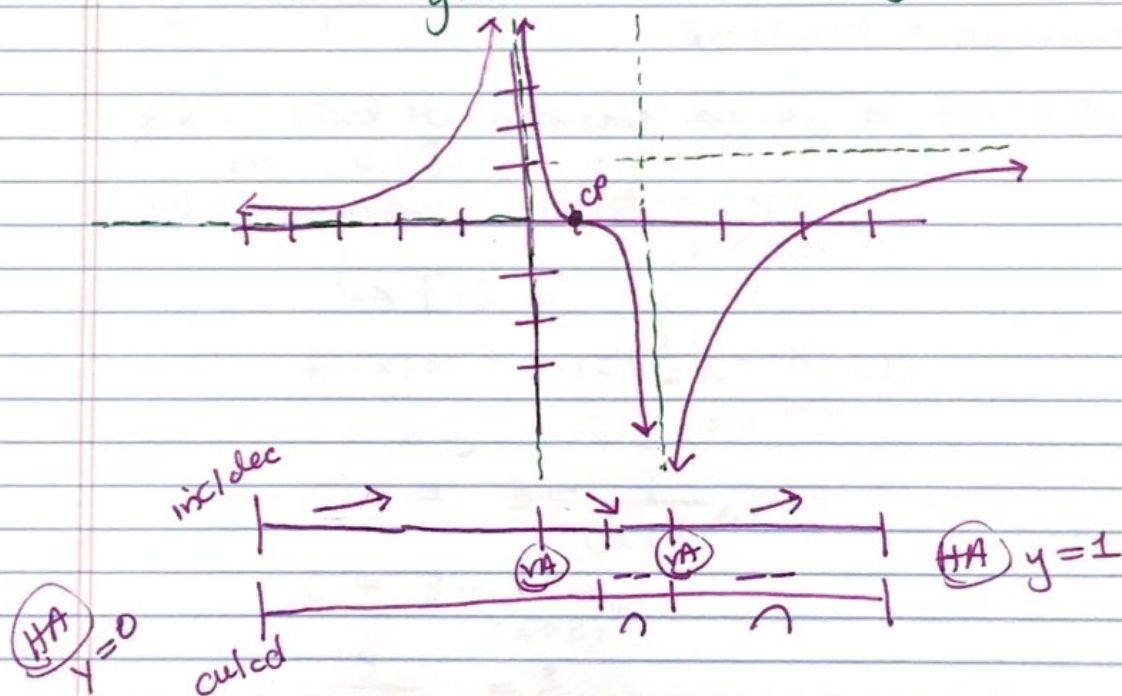 CP
inc/dec
VA VA
HA y=1
HA y=0
cu/cd